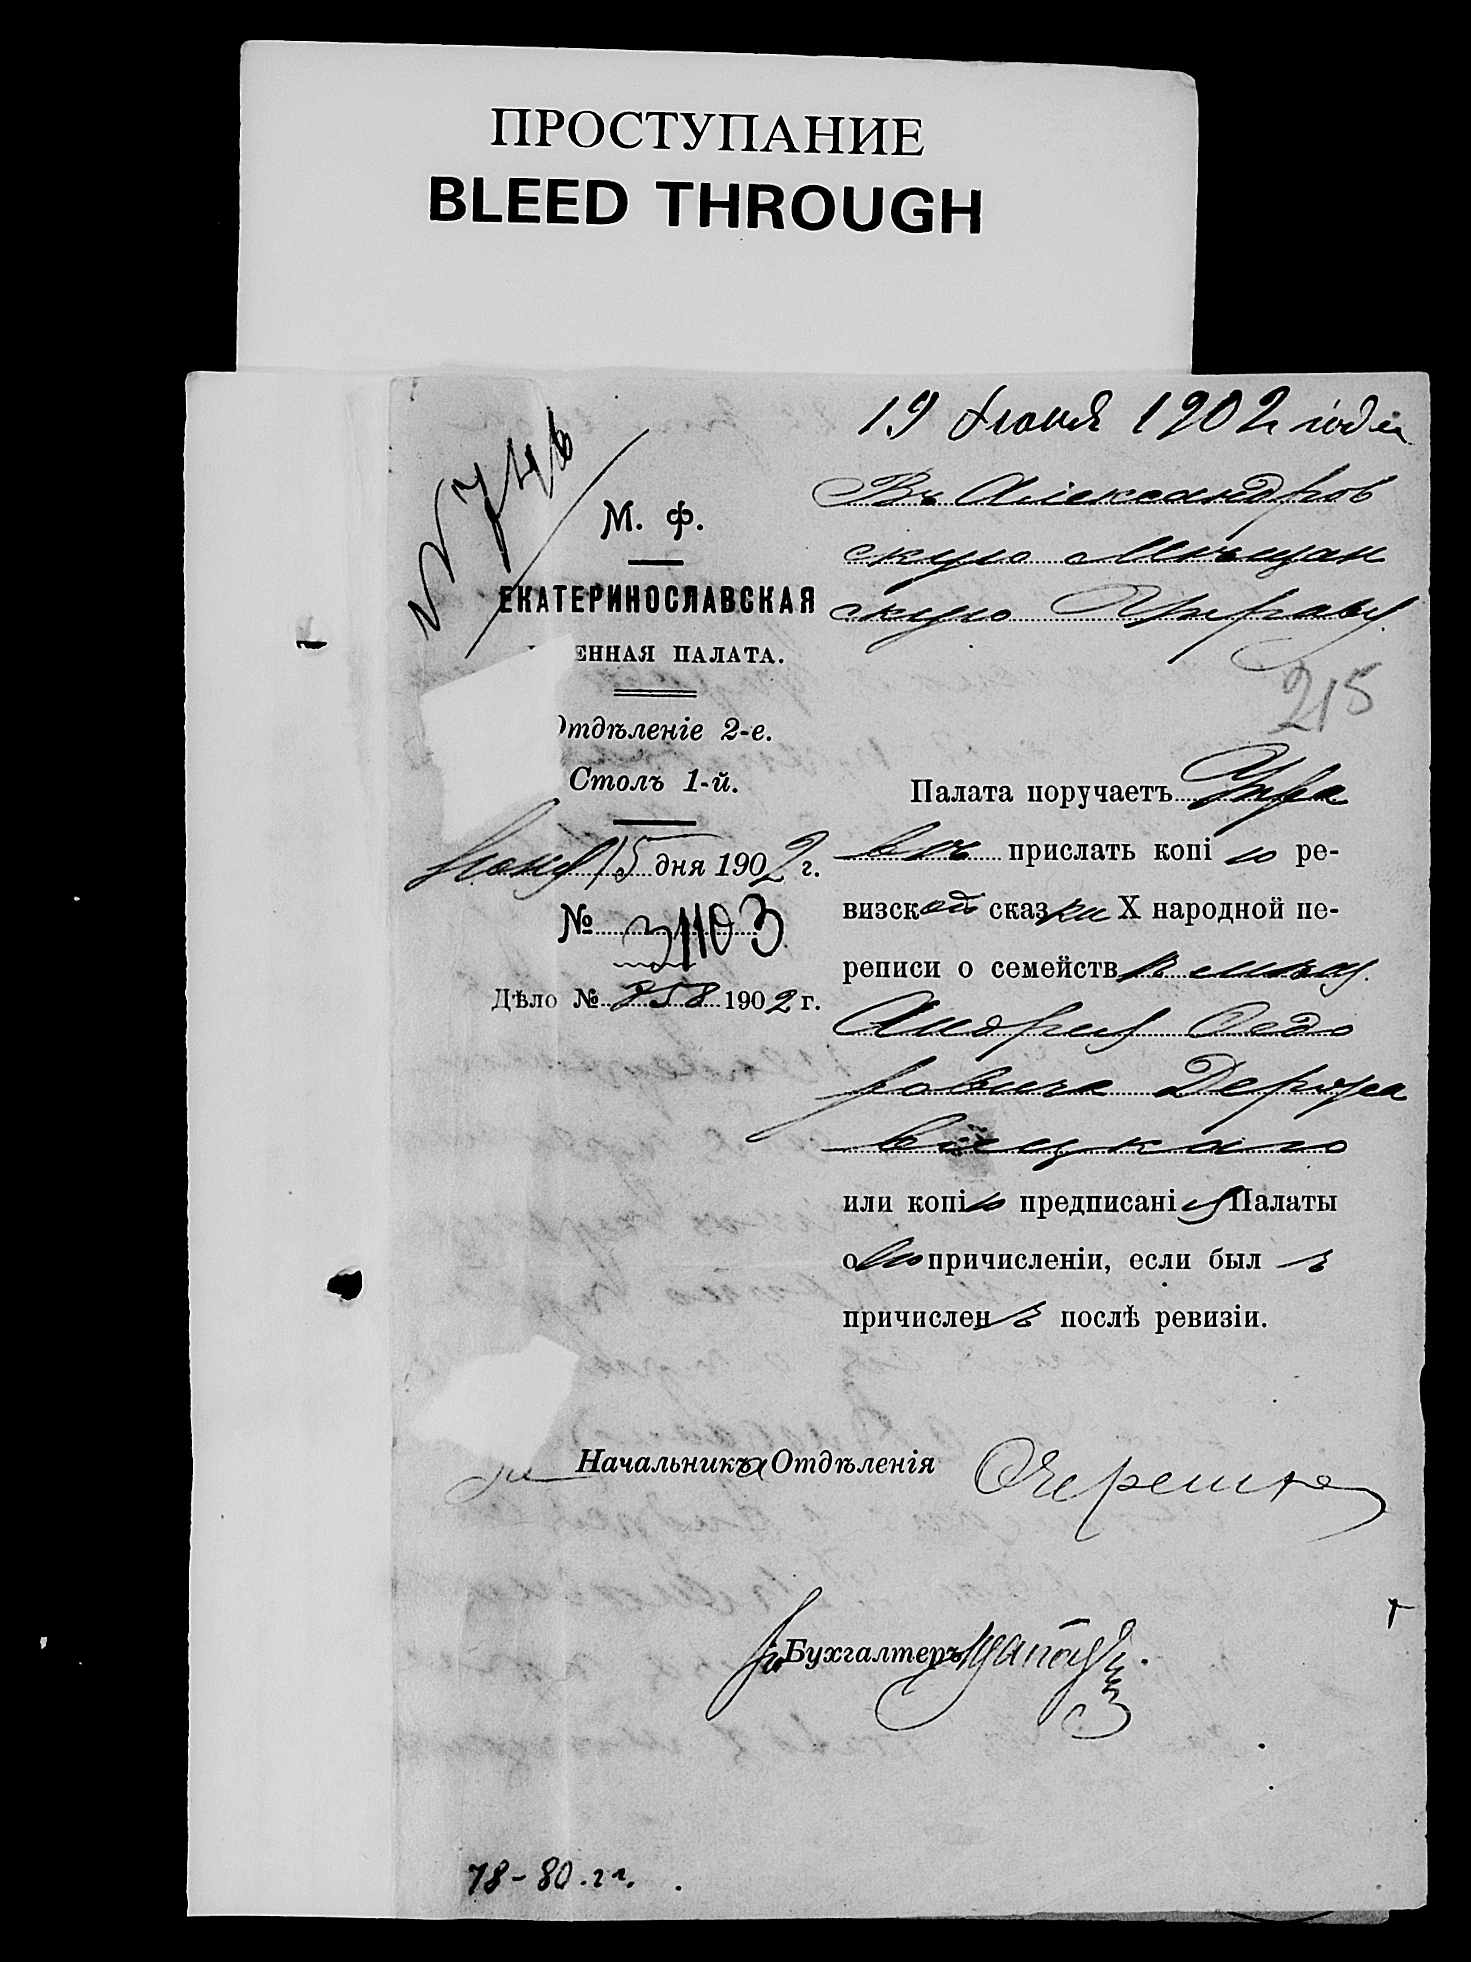 ПРОСТУПАНИЕ
BLEED THROUGH
19 Июня 1902 года
№ 746
М. Ф.
ЕКАТЕРИНОСЛАВСКАЯ
ЕННАЯ ПАЛАТА.
Отдѣленіе 2-е.
Столъ 1-й.
Іюня 15 дня 1902 г.
№ 31103
Дѣло № 858 1902 г.
Въ Александров
скую Мѣщан
скую Управу
215
Палата поручаетъ Упра
вѣ прислать копію ре-
визской сказки X народной пе-
реписи о семействѣ
Андрея Ѳедо
ровича Держа
вецкаго
или копію предписанія Палаты
о причисленіи, если былъ
причисленъ послѣ ревизіи.
Начальника Отдѣленія
Бухгалтеръ
78-80.гг.